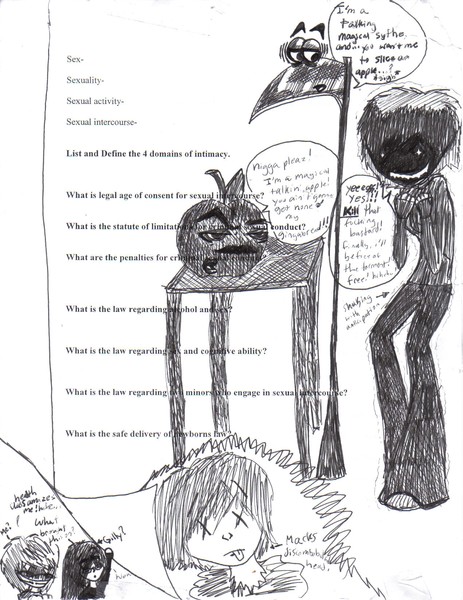 Sex-
Sexuality-
Sexual activity-
Sexual intercourse-
List and Define the 4 domains of intimacy.
What is legal age of consent for sexual intercourse?
What is the statute of limitations for criminal sexual conduct?
What are the penalties for criminal
What is the law regarding alcohol and sex?
What is the law regarding and cognitive ability?
What is the law regarding two minors who engage in sexual intercourse?
What is the safe delivery of newborns law?
I'm a
talking
magical sythe.
and you want me
to slice an
apple...?
*sigh*
nigga pleaz!
I'm a magical
talkin' apple!
you ain't gonna
get none o'
my
yeeesss!
YES!!!
Kill that
fucking
bastard!
finally, i'll
be free of
the torment!
Free!
shaking
with
anticipation
health
class
me
What
Golly?
Mack's
head.